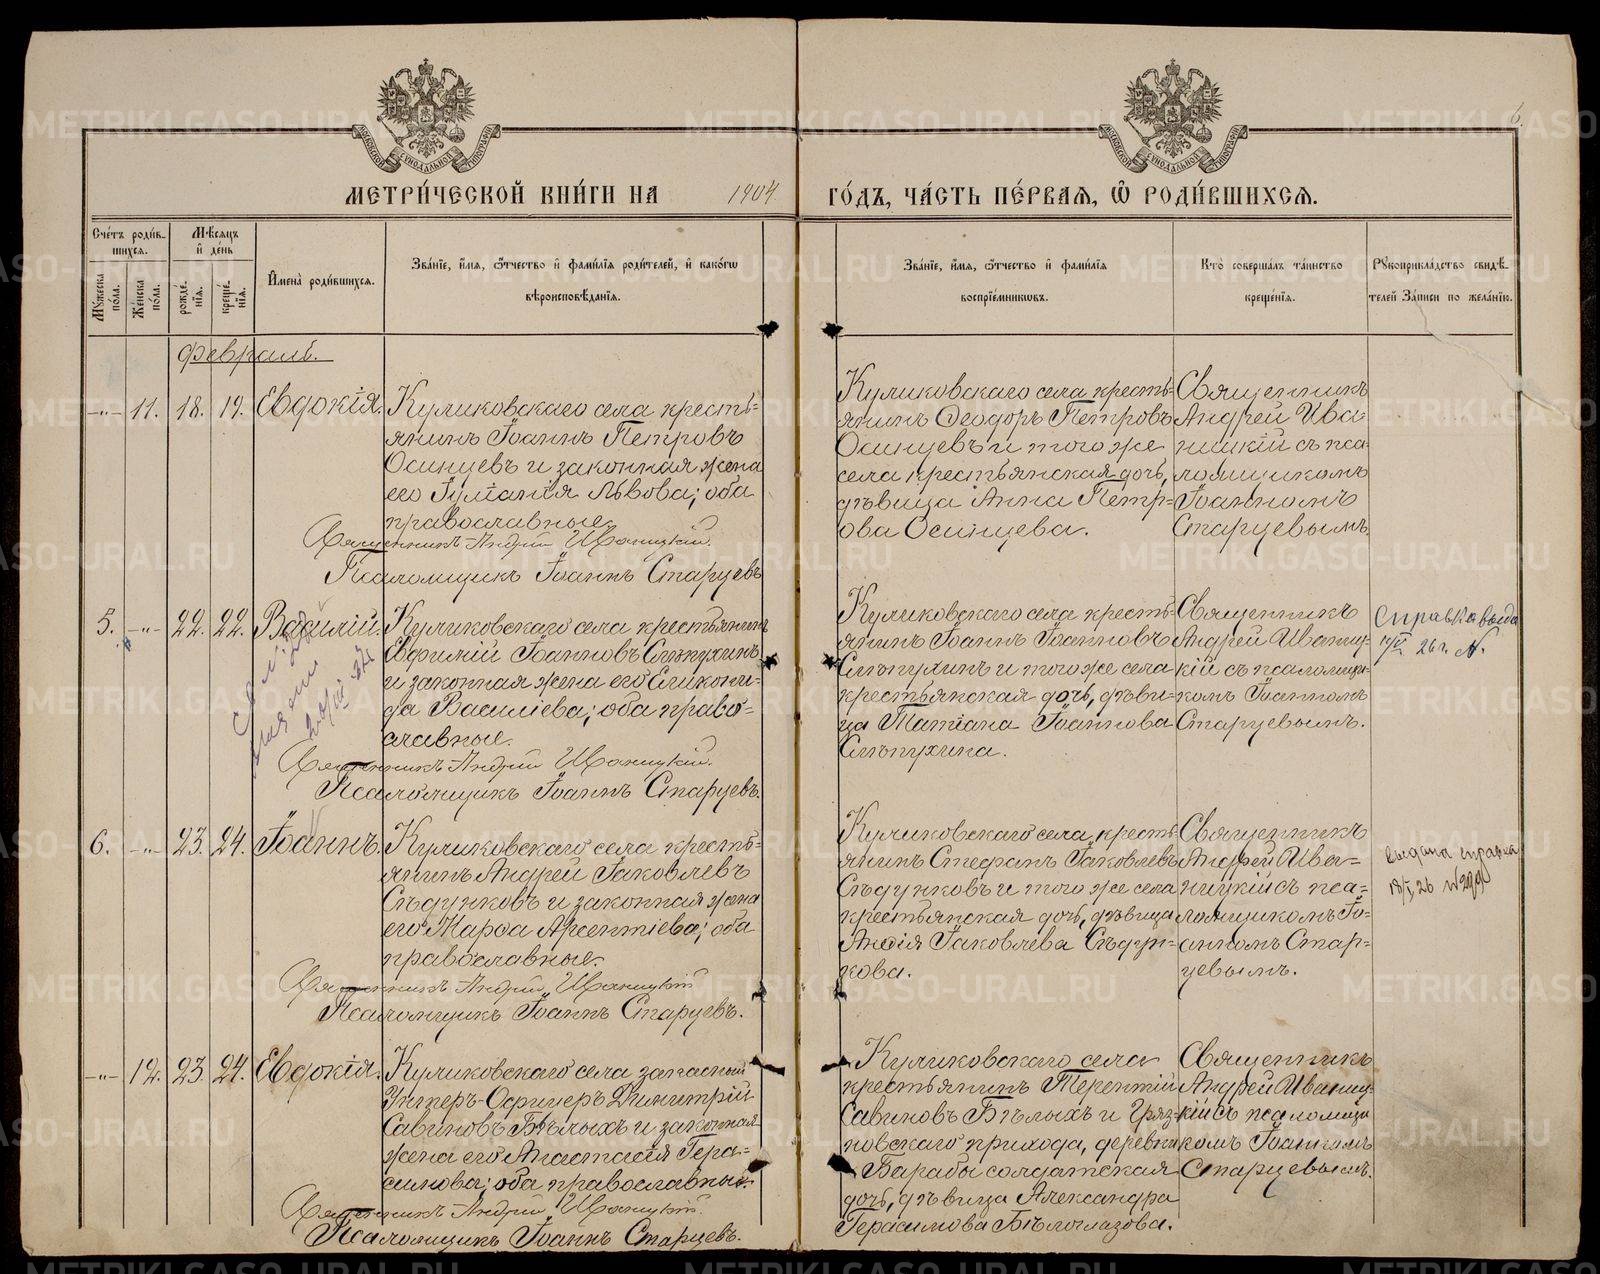 МЕТРИ́ЧЕСКОЙ КНИ́ГИ НА 1904 ГО́ДЪ, ЧА́СТЬ ПЕ́РВАЯ, Ѡ҆ РОДИ́ВШИХСЯ.
6.
Сче́тъ роди́в-
шихся.
Мꙋ́жеска
по́ла.
Же́нска
по́ла.
Мѣ́сяцъ
и҆ де́нь
рожде́-
нїя.
креще́-
нїя.
И҆мена̀ роди́вшихся.
Зва́нїе, и҆́мя, ѻ҆́тчество и҆ фами́лїя роди́телей, и҆ како́гѡ
вѣроисповѣ́данїя.
Зва́нїе, и҆́мя, ѻ҆́тчество и҆ фами́лїя
воспрїе́мниковъ.
Кто̀ соверша́лъ та́инство
креще́нїя.
Рꙋкоприкла́дство свидѣ́-
телей за́писи по жела́нїю.
Февраль.
-„- 11. 18. 19. Евдокія.
Куликовскаго села кресть-
янинъ Іоаннъ Петровъ
Осинцевъ и законная жена
его Іуліанія Львова; оба
православные.
Священникъ Андрей Иваницкій.
Псаломщикъ Іоаннъ Старцевъ
Куликовскаго села кресть-
янинъ Ѳеодоръ Петровъ
Осинцевъ и того же
села крестьянская дочь,
дѣвица Анна Петр-
ова Осинцева.
Священникъ
Андрей Ива
ницкій съ пса-
ломщикомъ
Іоанномъ
Старцевымъ.
5. -„- 22. 22. Василій.
Куликовскаго села крестьянинъ
Евфимій Іоанновъ Слѣпухинъ
и законная жена его Еликони-
да Василіева; оба право-
славные.
Священникъ Андрей Иваницкій.
Псаломщикъ Іоаннъ Старцевъ.
Куликовскаго села кресть-
янинъ Іоаннъ Іоанновъ
Слѣпухинъ и того же села
крестьянская дочь, дѣви-
ца Татіана Іоаннова
Слѣпухина.
Священникъ
Андрей Иваниц-
кій съ псаломщи-
комъ Іоанномъ
Старцевымъ.
Справка выда
26 г.
6. -„- 23. 24. Іоаннъ.
Куликовскаго села кресть-
янинъ Андрей Іаковлевъ
Сѣдунковъ и законная жена
его Марѳа Арсентіева; оба
православные.
Священникъ Андрей Иваницкій
Псаломщикъ Іоаннъ Старцевъ.
Куликовскаго села, кресть-
янинъ Стефанъ Іаковлевъ
Сѣдунковъ и того же села
крестьянская дочь, дѣвица
Анѳія Іаковлева Сѣдун-
кова.
Священникъ
Андрей Ива-
ницкій съ пса-
ломщикомъ Іо-
анномъ Стар-
цевымъ.
выдана справка
-„- 12. 23. 24. Евдокія.
Куликовскаго села запасный
Унтеръ-Офицеръ Димитрій
Савиновъ Бѣлыхъ и законная
жена его Анастасія Гера-
симова; оба православные.
Священникъ Андрей Иваницкій.
Псаломщикъ Іоаннъ Старцевъ.
Куликовскаго села
крестьянинъ Терентій
Савиновъ Бѣлыхъ и Гряз-
новскаго прихода, деревни
Барабы солдатская
дочь, дѣвица Александра
Герасимова Бѣлоглазова.
Священникъ
Андрей Иваниц-
кій съ псаломщи
комъ Іоанномъ
Старцевымъ.
METRIKI.GASO-URAL.RU